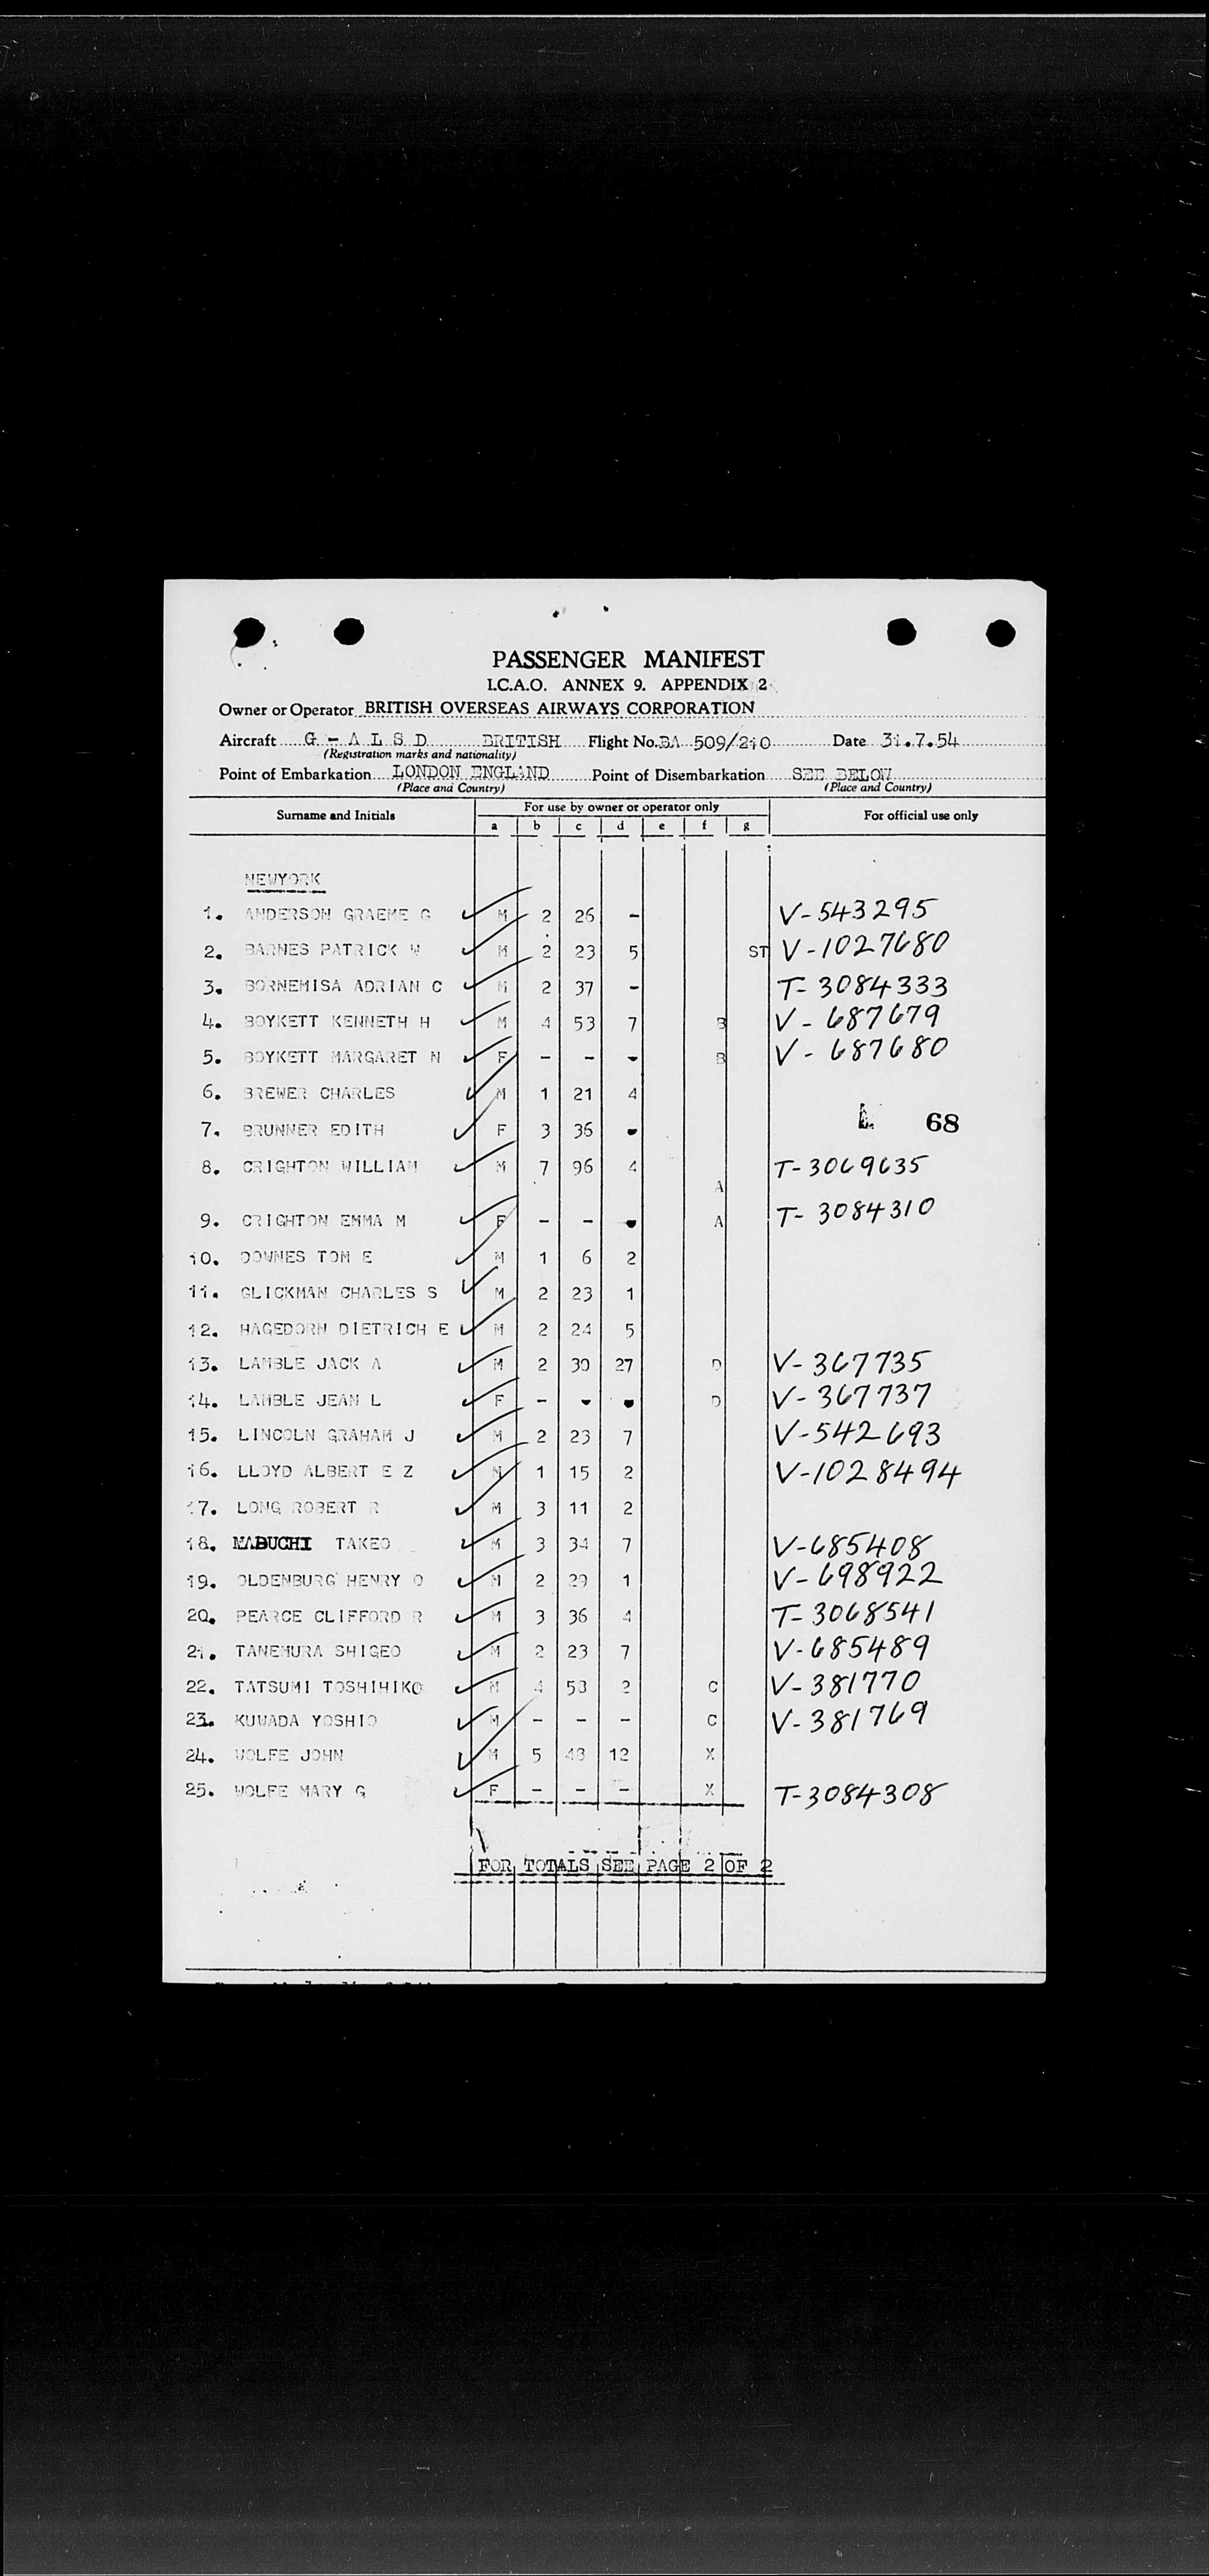 PASSENGER MANIFEST
I.C.A.O. ANNEX 9. APPENDIX 2
Owner or Operator BRITISH OVERSEAS AIRWAYS CORPORATION
Aircraft G - A L S D BRITISH Flight No. BA 509/210 Date 31.7.54
(Registration marks and nationality)
Point of Embarkation LONDON ENGLAND Point of Disembarkation SEE BELOW
(Place and Country) (Place and Country)
Surname and Initials For use by owner or operator only For official use only
a b c d e f g
NEWYORK
1. ANDERSON GRAEME G M 2 26 - V-543295
2. BARNES PATRICK W M 2 23 5 ST V-1027680
3. BORNEMISA ADRIAN C M 2 37 - T-3084333
4. BOYKETT KENNETH H M 4 53 7 B V-687679
5. BOYKETT MARGARET N F - - - B V-687680
6. BREWER CHARLES M 1 21 4
7. BRUNNER EDITH F 3 36 - 68
8. CRIGHTON WILLIAM M 7 96 4 A T-3069635
9. CRIGHTON EMMA M F - - - A T-3084310
10. DOWNES TOM E M 1 6 2
11. GLICKMAN CHARLES S M 2 23 1
12. HAGEDORN DIETRICH E M 2 24 5
13. LAMBLE JACK A M 2 30 27 D V-367735
14. LAMBLE JEAN L F - - - D V-367737
15. LINCOLN GRAHAM J M 2 23 7 V-542693
16. LLOYD ALBERT E Z M 1 15 2 V-1028494
17. LONG ROBERT R M 3 11 2
18. MABUCHI TAKEO M 3 34 7 V-685408
19. OLDENBURG HENRY O M 2 29 1 V-698922
20. PEARCE CLIFFORD R M 3 36 4 T-3068541
21. TANEMURA SHIGEO M 2 23 7 V-685489
22. TATSUMI TOSHIHIKO M 4 58 2 C V-381770
23. KUWADA YOSHIO M - - - C V-381769
24. WOLFE JOHN M 5 48 12 X
25. WOLFE MARY G F - - - X T-3084308
FOR TOTALS SEE PAGE 2 OF 2